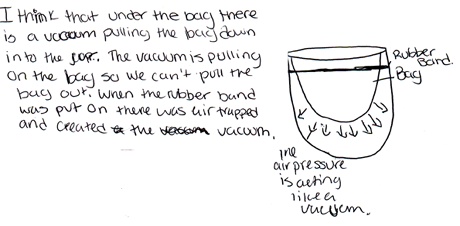 I think that under the bag there
is a vacuum pulling the bag down
into the jar. The vacuum is pulling
on the bag so we can't pull the
bag out. When the rubber band
was put on there was air trapped
and created the vacuum.
Rubber
Band.
Bag
The
air pressure
is acting
like a
vacuum.